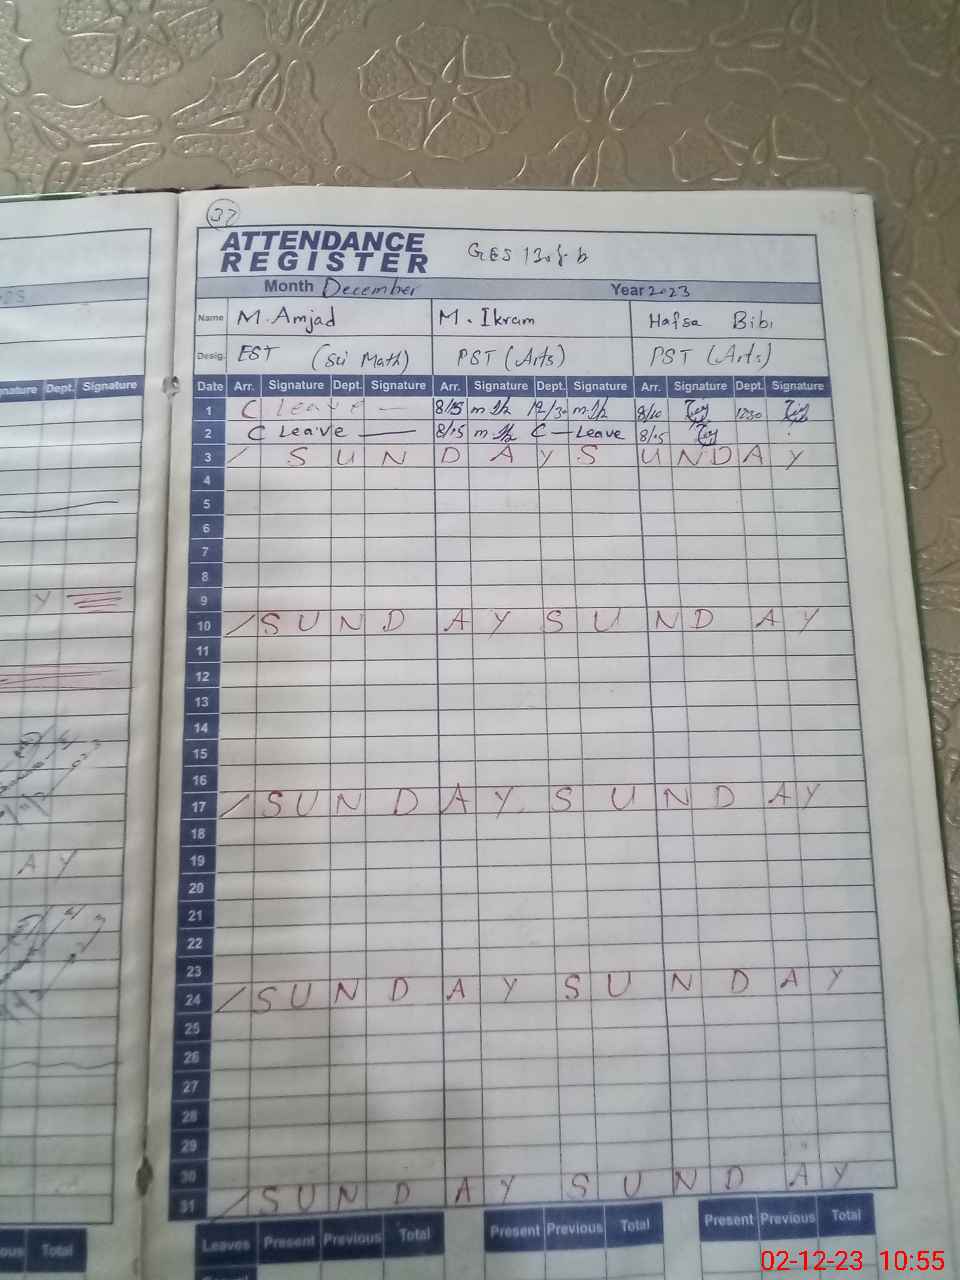 37
ATTENDANCE
REGISTER
Month December Year 2023
Name M. Amjad M. Ikram Hafsa Bibi
Desig. EST (Sci Math) PST (Arts) PST (Arts)
Date Arr. Signature Dept. Signature Arr. Signature Dept. Signature Arr. Signature Dept. Signature
1 C Leave — 8/15 12/30 8/10 1230
2 C Leave — 8/15 C — Leave 8/15
3 / S U N D A Y S U N D A Y
4
5
6
7
8
9
10 / S U N D A Y S U N D A Y
11
12
13
14
15
16
17 / S U N D A Y S U N D A Y
18
19
20
21
22
23
24 / S U N D A Y S U N D A Y
25
26
27
28
29
30
31 / S U N D A Y S U N D A Y
Leaves Present Previous Total Present Previous Total Present Previous Total
nature Dept. Signature
Y
A Y
ous Total
02-12-23 10:55